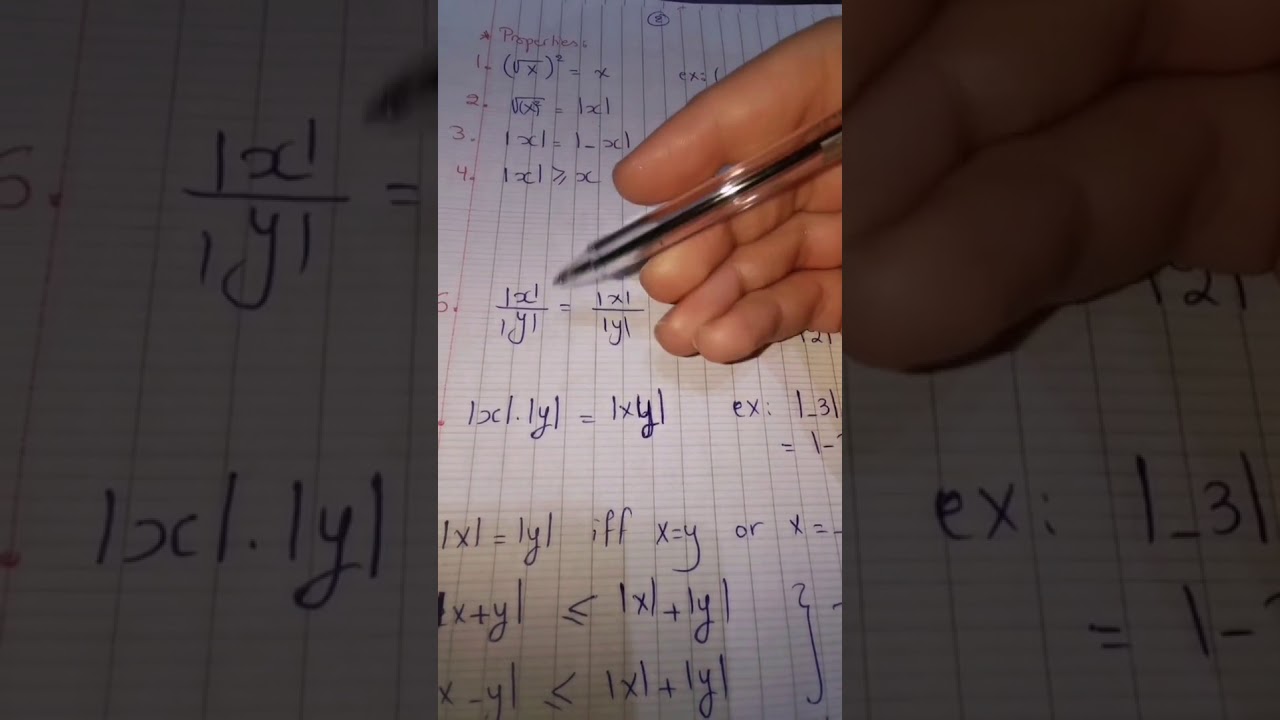 8
* Properties:
1. (√x)² = x ex: (
2. √(x)² = |x|
3. |x| = |-x|
4. |x| ≥ x
5. |x| / |y| = |x| / |y|
|2|
|x|.|y| = |xy| ex: |-3|
= |-
|x| = |y| iff x=y or x=-
|x+y| ≤ |x|+|y| }
x-y| ≤ |x|+|y|